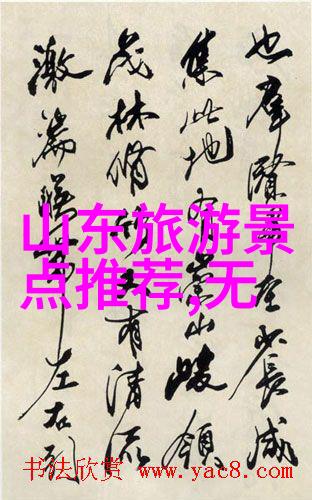 也羣賢畢至少長咸
集此地有崇山峻領
茂林脩竹又有清流
激湍映帶左右引
山东旅游景
点推荐,无
书法欣赏 www.yac8.com